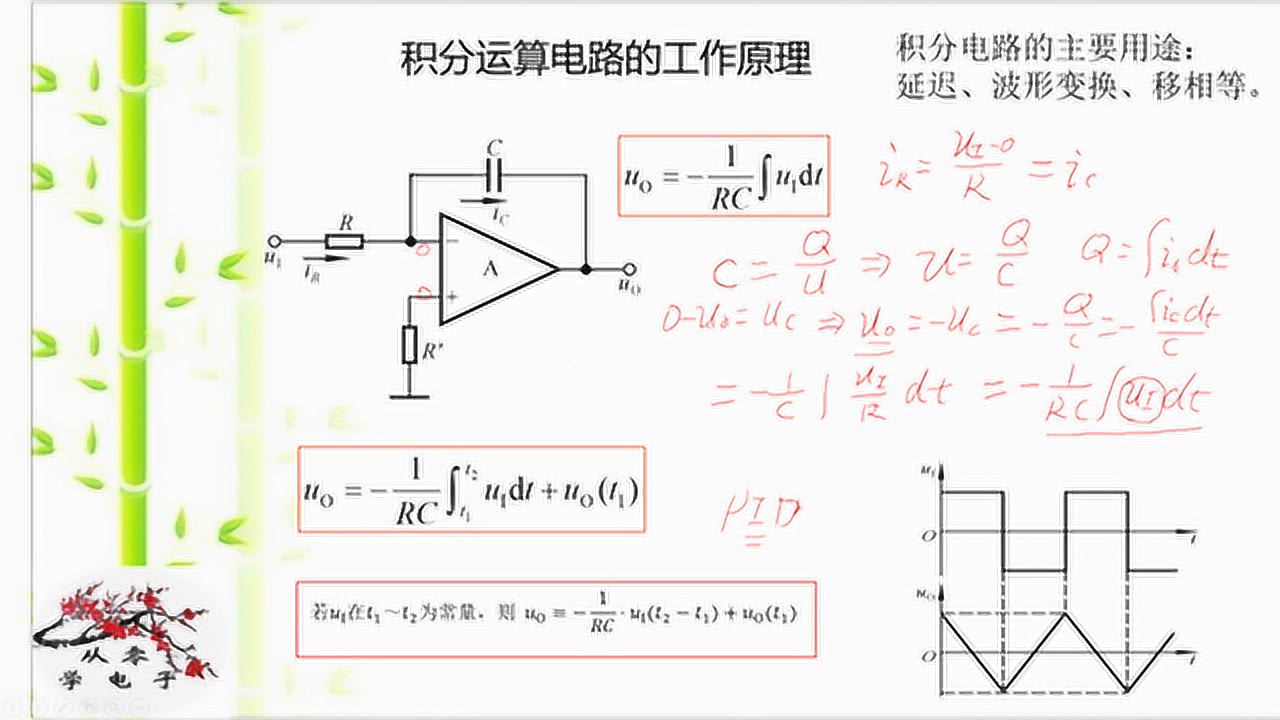 积分运算电路的工作原理
积分电路的主要用途：
延迟、波形变换、移相等。
C
i_C
R
u_I
i_R
A
−
+
0
0
u_O
R'
u_O = −\frac{1}{RC}∫u_I dt
i_R = \frac{u_I−0}{R} = i_C
C = \frac{Q}{U} ⇒ U = \frac{Q}{C} Q = ∫i_C dt
0−u_o = u_C ⇒ u_o = −u_C = −\frac{Q}{C} = −\frac{∫i_C dt}{C}
= −\frac{1}{C}∫\frac{u_I}{R}dt = −\frac{1}{RC}∫u_I dt
u_O = −\frac{1}{RC}∫_{t_1}^{t_2} u_I dt + u_O(t_1)
PID
若u_I在t_1～t_2为常量，则 u_O = −\frac{1}{RC}·u_I(t_2−t_1)+u_O(t_1)
u_I
O
t
u_O
O
t
从零
学电子